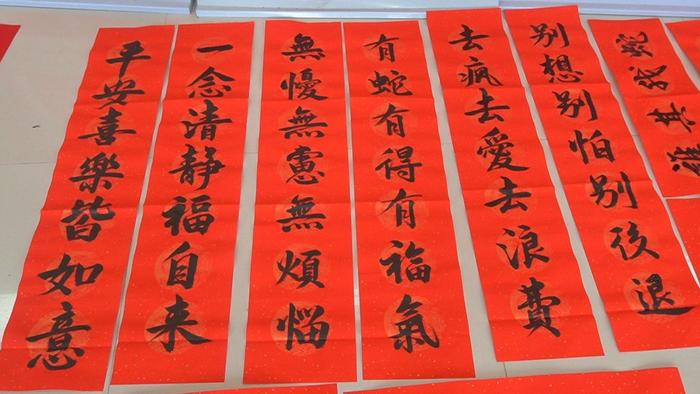 蛇我其
别想别怕别後退
去瘋去愛去浪費
有蛇有得有福氣
無懮無慮無煩惱
一念清静福自来
平安喜樂皆如意